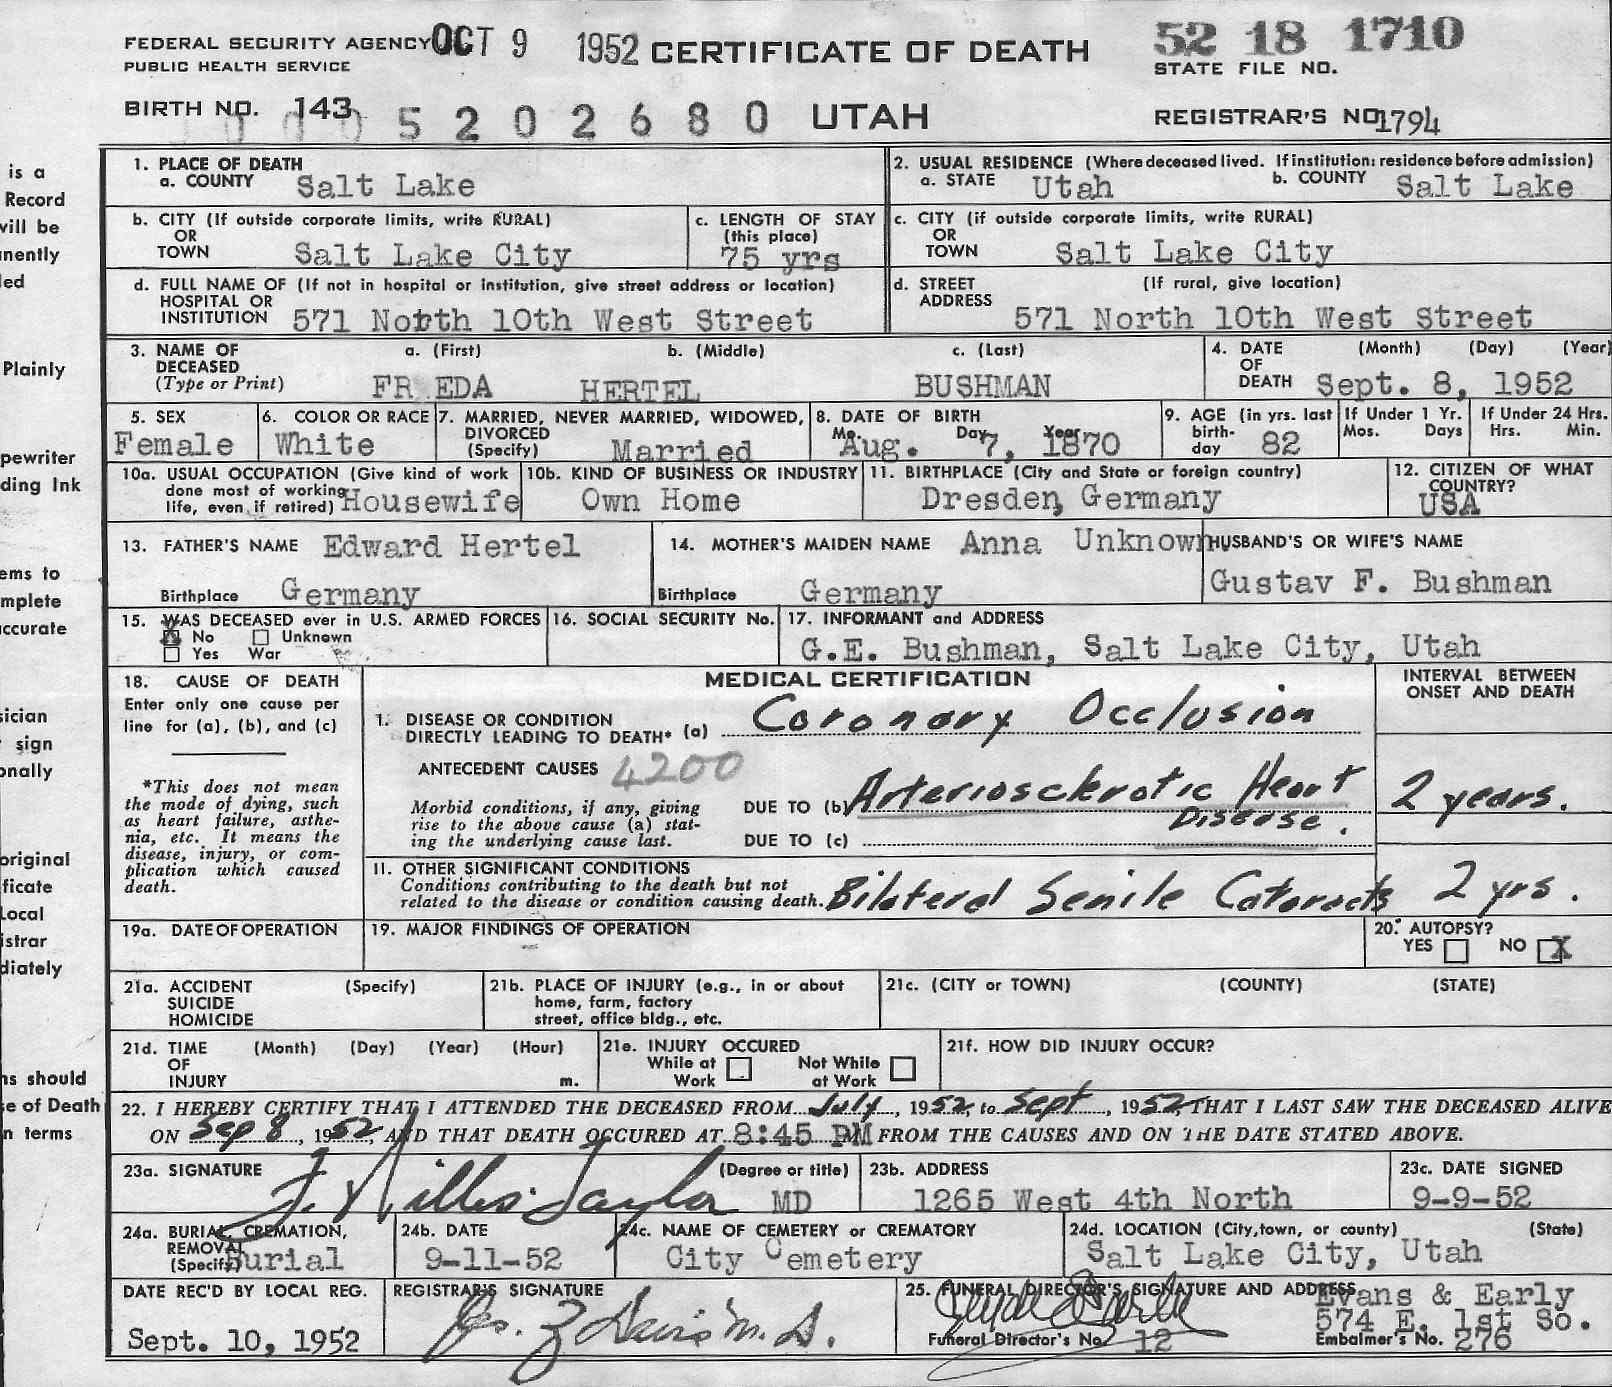 FEDERAL SECURITY AGENCY OCT 9 1952 CERTIFICATE OF DEATH 52 18 1710
PUBLIC HEALTH SERVICE STATE FILE NO.
BIRTH NO. 143 5202680 UTAH REGISTRAR'S NO 1794
is a
Record
will be
nently
led
Plainly
pewriter
ding Ink
ems to
mplete
accurate
sician
sign
onally
original
ficate
Local
istrar
diately
ns should
se of Death
n terms
1. PLACE OF DEATH
a. COUNTY Salt Lake
2. USUAL RESIDENCE (Where deceased lived. If institution: residence before admission)
a. STATE Utah b. COUNTY Salt Lake
b. CITY (If outside corporate limits, write RURAL)
OR
TOWN Salt Lake City
c. LENGTH OF STAY
(this place)
75 yrs
c. CITY (if outside corporate limits, write RURAL)
OR
TOWN Salt Lake City
d. FULL NAME OF (If not in hospital or institution, give street address or location)
HOSPITAL OR
INSTITUTION 571 North 10th West Street
d. STREET (If rural, give location)
ADDRESS 571 North 10th West Street
3. NAME OF a. (First) b. (Middle) c. (Last)
DECEASED
(Type or Print) FR EDA HERTEL BUSHMAN
4. DATE (Month) (Day) (Year)
OF
DEATH Sept. 8, 1952
5. SEX
Female
6. COLOR OR RACE
White
7. MARRIED, NEVER MARRIED, WIDOWED,
DIVORCED
(Specify) Married
8. DATE OF BIRTH
Mo. Day Year
Aug. 7, 1870
9. AGE (in yrs. last
birth-
day 82
If Under 1 Yr.
Mos. Days
If Under 24 Hrs.
Hrs. Min.
10a. USUAL OCCUPATION (Give kind of work
done most of working
life, even if retired) Housewife
10b. KIND OF BUSINESS OR INDUSTRY
Own Home
11. BIRTHPLACE (City and State or foreign country)
Dresden, Germany
12. CITIZEN OF WHAT
COUNTRY?
USA
13. FATHER'S NAME Edward Hertel
Birthplace Germany
14. MOTHER'S MAIDEN NAME Anna Unknown
Birthplace Germany
HUSBAND'S OR WIFE'S NAME
Gustav F. Bushman
15. WAS DECEASED ever in U.S. ARMED FORCES
X No Unknown
Yes War
16. SOCIAL SECURITY No.
17. INFORMANT and ADDRESS
G.E. Bushman, Salt Lake City, Utah
18. CAUSE OF DEATH
Enter only one cause per
line for (a), (b), and (c)
*This does not mean
the mode of dying, such
as heart failure, asthe-
nia, etc. It means the
disease, injury, or com-
plication which caused
death.
MEDICAL CERTIFICATION
INTERVAL BETWEEN
ONSET AND DEATH
1. DISEASE OR CONDITION
DIRECTLY LEADING TO DEATH* (a) Coronary Occlusion
ANTECEDENT CAUSES 4200
Morbid conditions, if any, giving
rise to the above cause (a) stat-
ing the underlying cause last.
DUE TO (b) Arteriosclerotic Heart
Disease. 2 years.
DUE TO (c)
11. OTHER SIGNIFICANT CONDITIONS
Conditions contributing to the death but not
related to the disease or condition causing death. Bilateral Senile Cataracts 2 yrs.
19a. DATE OF OPERATION
19. MAJOR FINDINGS OF OPERATION
20. AUTOPSY?
YES NO X
21a. ACCIDENT (Specify)
SUICIDE
HOMICIDE
21b. PLACE OF INJURY (e.g., in or about
home, farm, factory
street, office bldg., etc.
21c. (CITY or TOWN) (COUNTY) (STATE)
21d. TIME (Month) (Day) (Year) (Hour)
OF
INJURY m.
21e. INJURY OCCURED
While at Not While
Work at Work
21f. HOW DID INJURY OCCUR?
22. I HEREBY CERTIFY THAT I ATTENDED THE DECEASED FROM July, 1952, to Sept, 1952, THAT I LAST SAW THE DECEASED ALIVE
ON Sep 8, 1952, AND THAT DEATH OCCURED AT 8:45 PM FROM THE CAUSES AND ON THE DATE STATED ABOVE.
23a. SIGNATURE (Degree or title)
Taylor MD
23b. ADDRESS
1265 West 4th North
23c. DATE SIGNED
9-9-52
24a. BURIAL, CREMATION,
REMOVAL
(Specify) Burial
24b. DATE
9-11-52
24c. NAME OF CEMETERY or CREMATORY
City Cemetery
24d. LOCATION (City, town, or county) (State)
Salt Lake City, Utah
DATE REC'D BY LOCAL REG.
Sept. 10, 1952
REGISTRAR'S SIGNATURE
Davis M.D.
25. FUNERAL DIRECTOR'S SIGNATURE AND ADDRESS
Evans & Early
574 E. 1st So.
Funeral Director's No. 12 Embalmer's No. 276